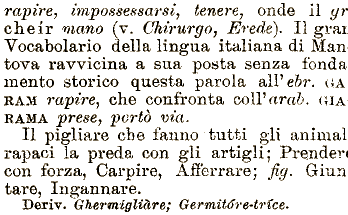 rapire, impossessarsi, tenere, onde il gr
cheír mano (v. Chirurgo, Erede). Il gran
Vocabolario della lingua italiana di Man
tova ravvicina a sua posta senza fonda
mento storico questa parola all'ebr. GA
RAM rapire, che confronta coll'arab. GIA
RAMA prese, portò via.
Il pigliare che fanno tutti gli animal
rapaci la preda con gli artigli; Prender
con forza, Carpire, Afferrare; fig. Giun
tare, Ingannare.
Deriv. Ghermigliàre; Germitóre-tríce.